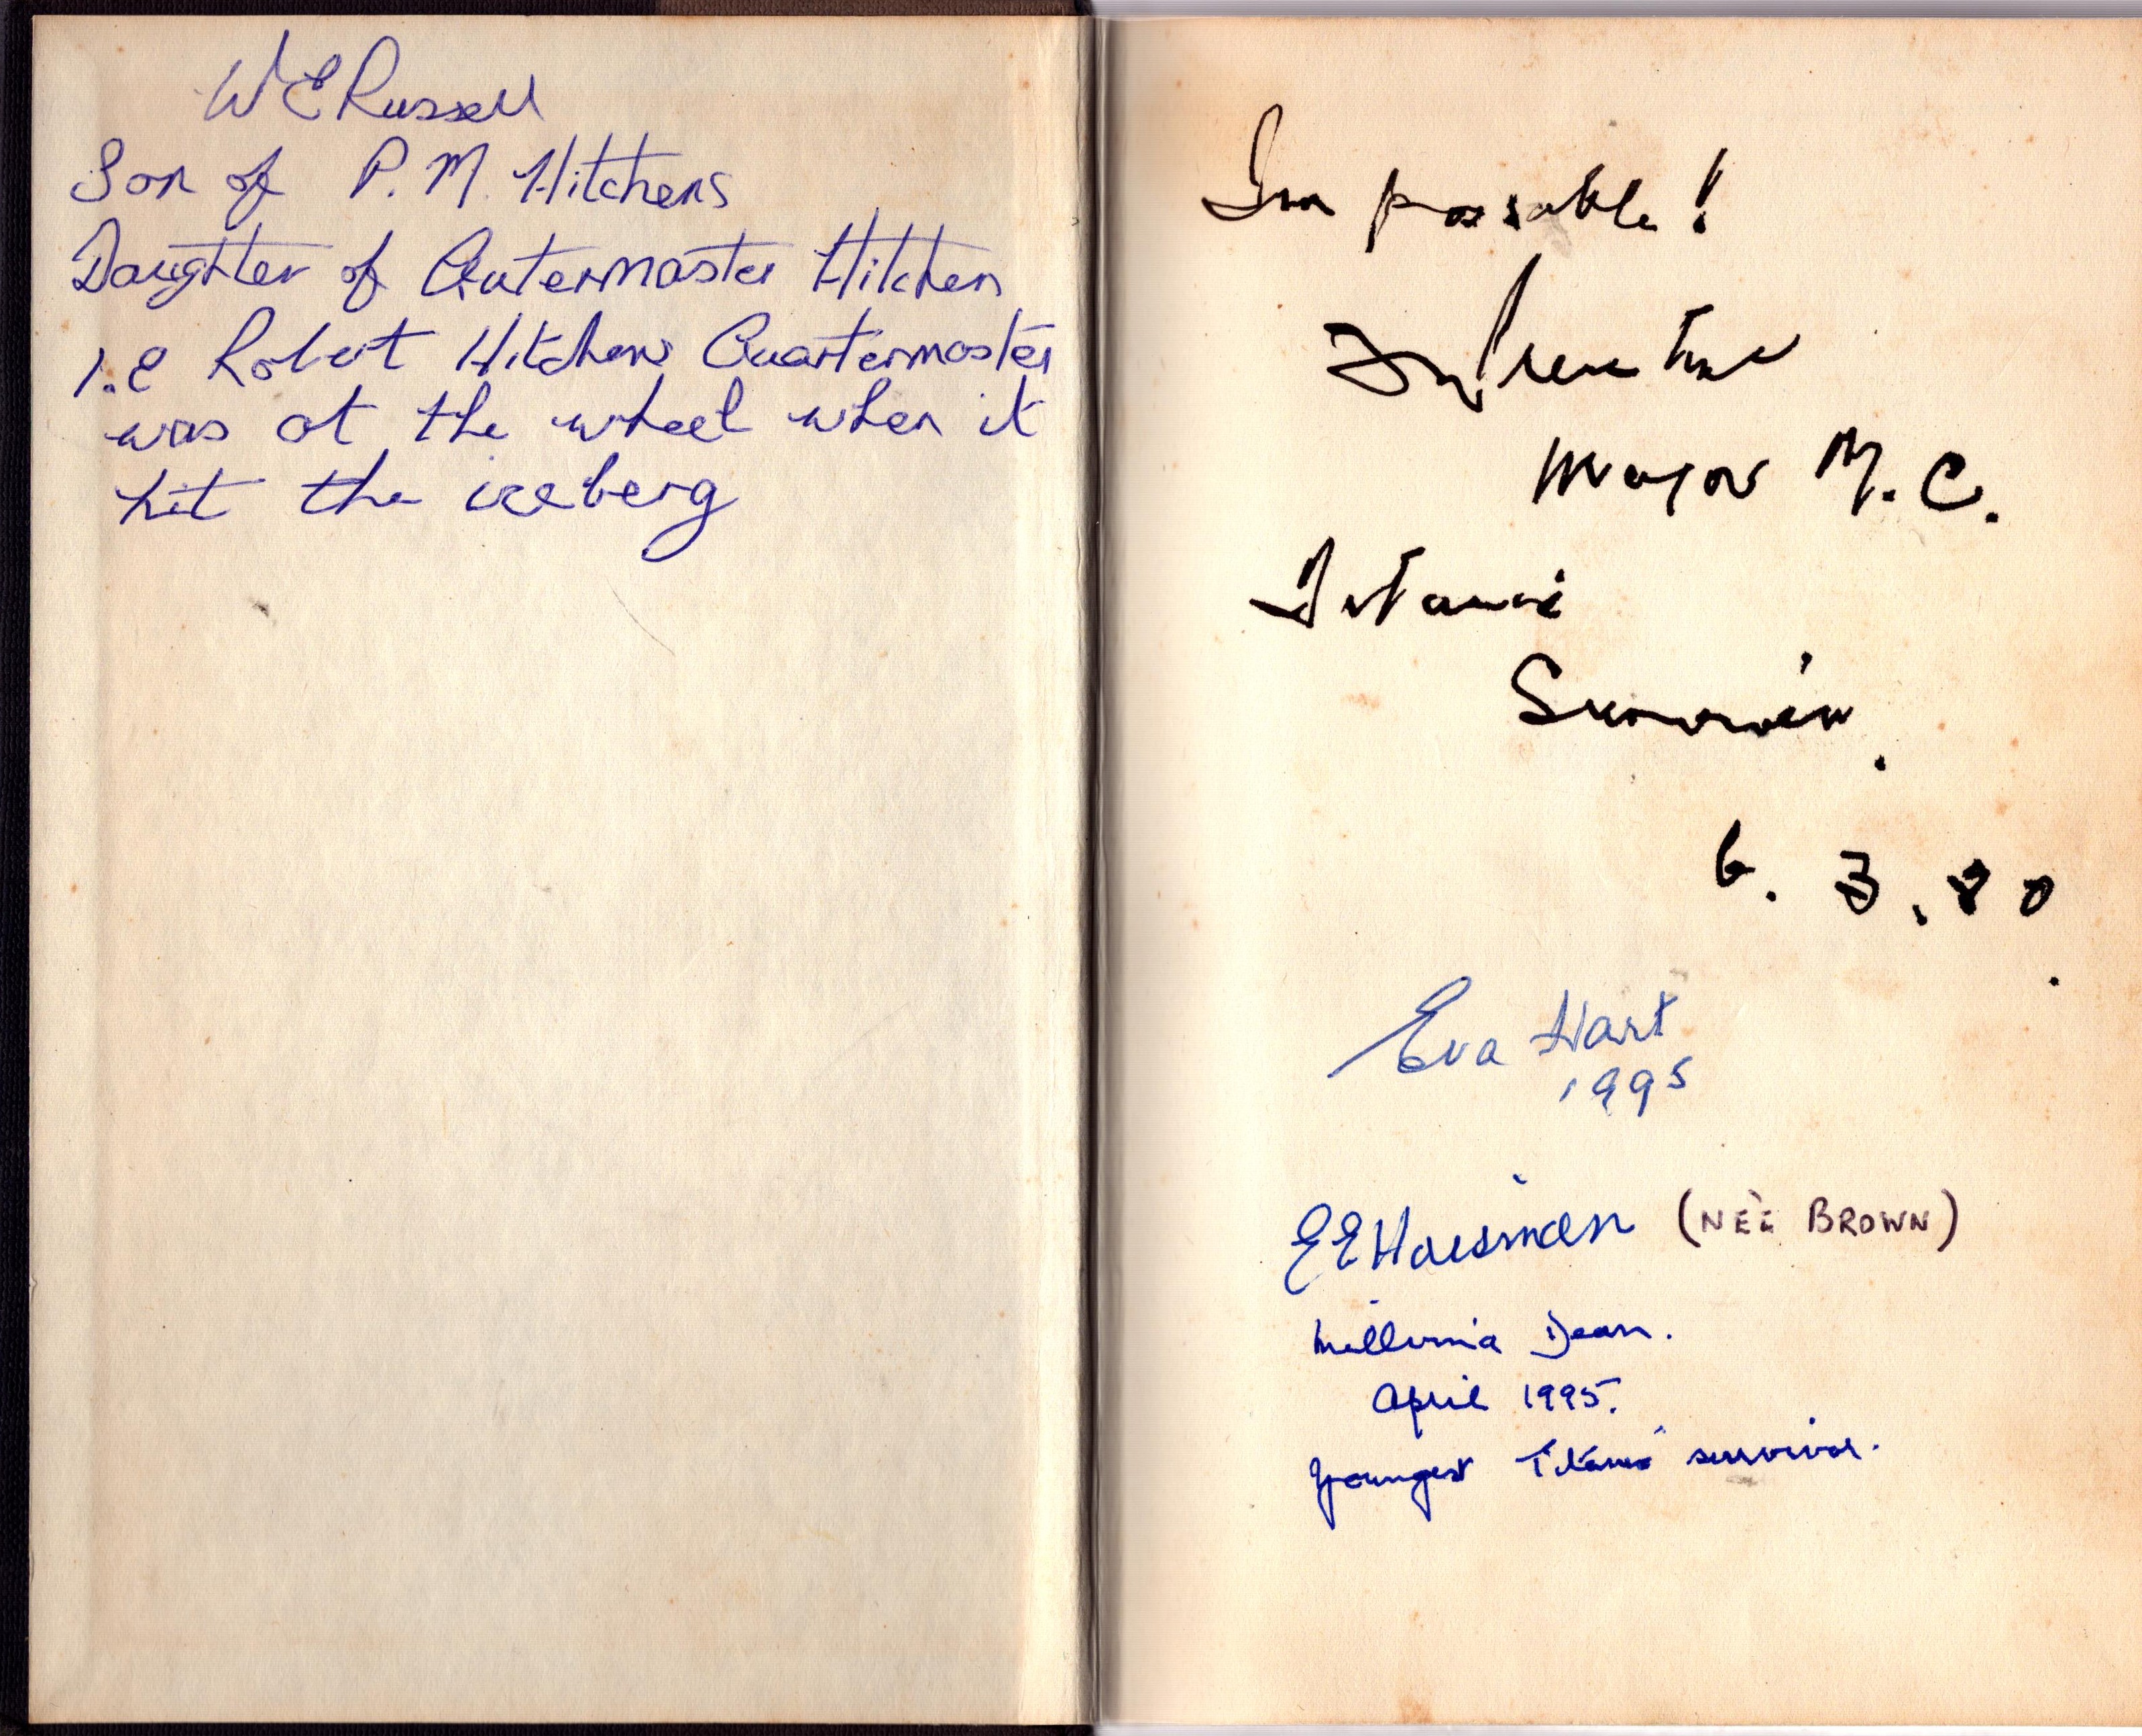 W E Russell
Son of P. M. Hitchens
Daughter of Qutermaster Hitchen
I.E Robert Hitchens Quartermaster
was at the wheel when it
hit the iceberg
Impossable!
Major M.C.
Titanic
Survivor.
6. 3. 80
Eva Hart
1995
E E Haisman (NEÉ BROWN)
Millvina Dean.
April 1995.
Youngest Titanic survivor.